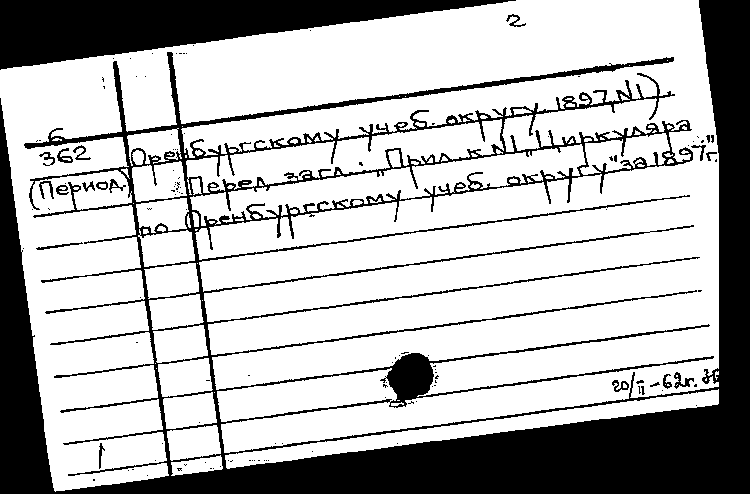 2
6
362
(Период.)
Оренбургскому учеб. округу. 1897, N1).
Перед загл.: „Прил. к N1 „Циркуляра
по Оренбургскому учеб. округу" за 1897 г."
20/II – 62 г.
1